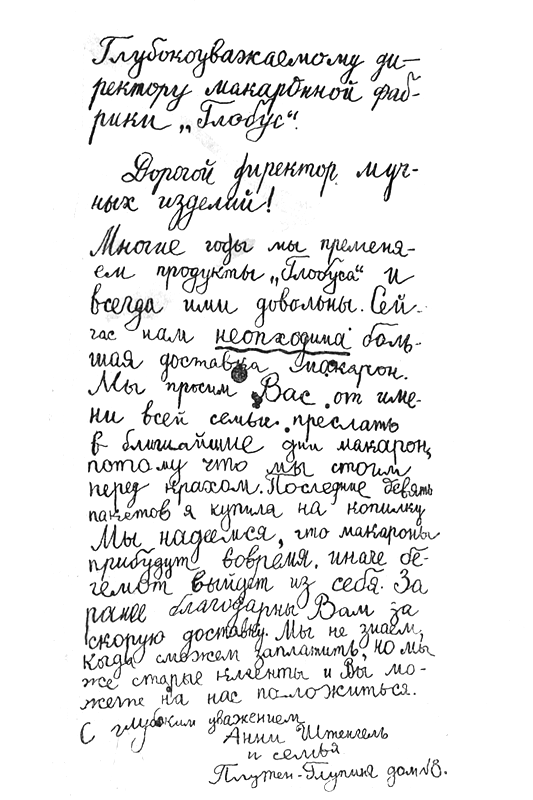 Глубокоуважаемому ди-
ректору макаронной фаб-
рики „Глобус“.
Дорогой директор муч-
ных изделий!
Многие годы мы пременя-
ем продукты „Глобуса“ и
всегда ими довольны. Сей-
час нам неопходима боль-
шая доставка макарон.
Мы просим Вас от име-
ни всей семьи преслать
в ближайшие дни макарон,
потому что мы стоим
перед крахом. Последние девять
пакетов я купила на копилку
Мы надеемся, что макароны
прибудут вовремя, иначе бе-
гемот выйдет из себя. За
ранее благодарны Вам за
скорую доставку. Мы не знаем,
когда сможем заплатить, но мы
же старые клиенты и Вы мо-
жете на нас положиться.
С глубоким уважением
Анни Штенгель
и семья
Плутен-Глупинг дом №8.